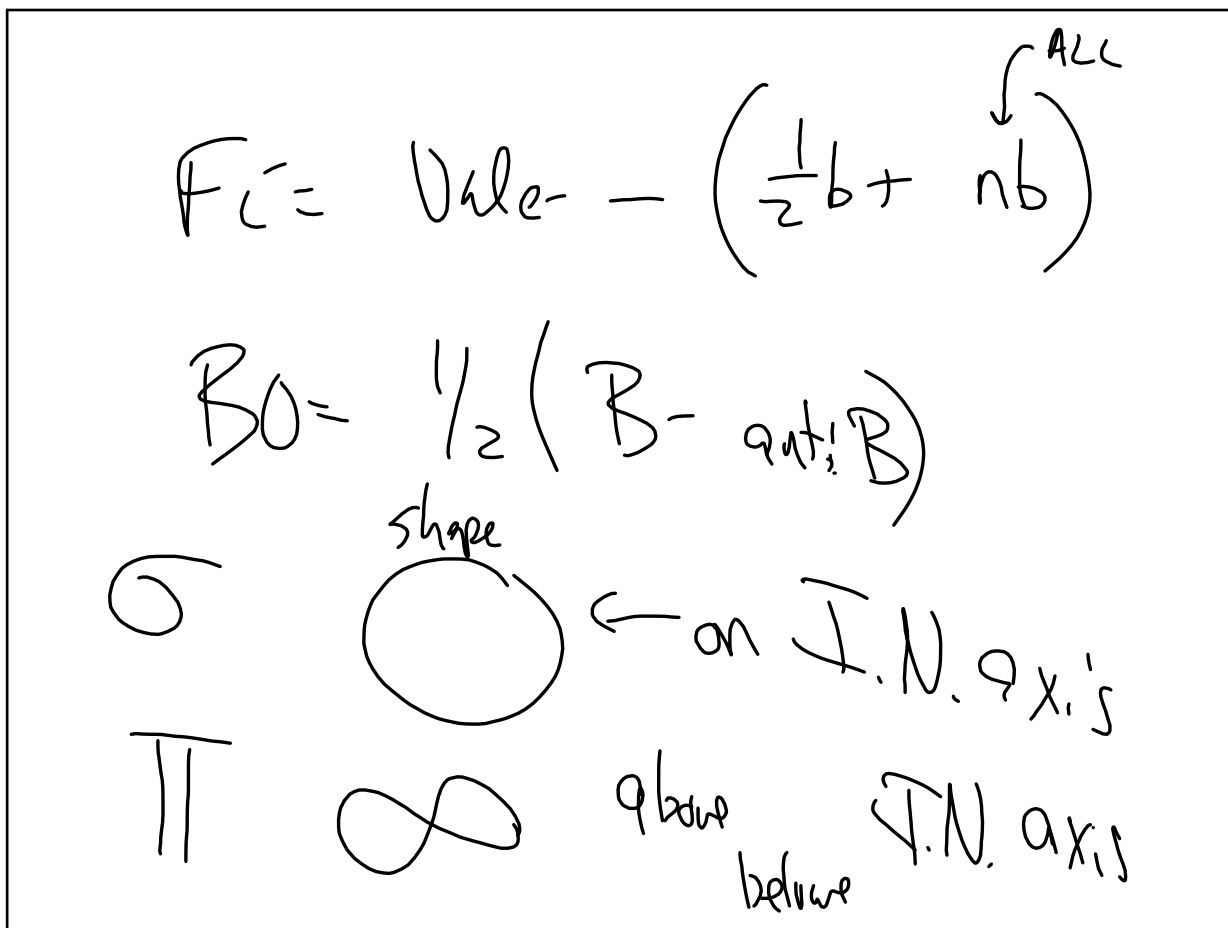 ALL
Fc = Vale- – (1/2 b + nb)
BO = 1/2 (B - anti B)
shape
σ ← on I.N. axis
π above I.N. axis
below